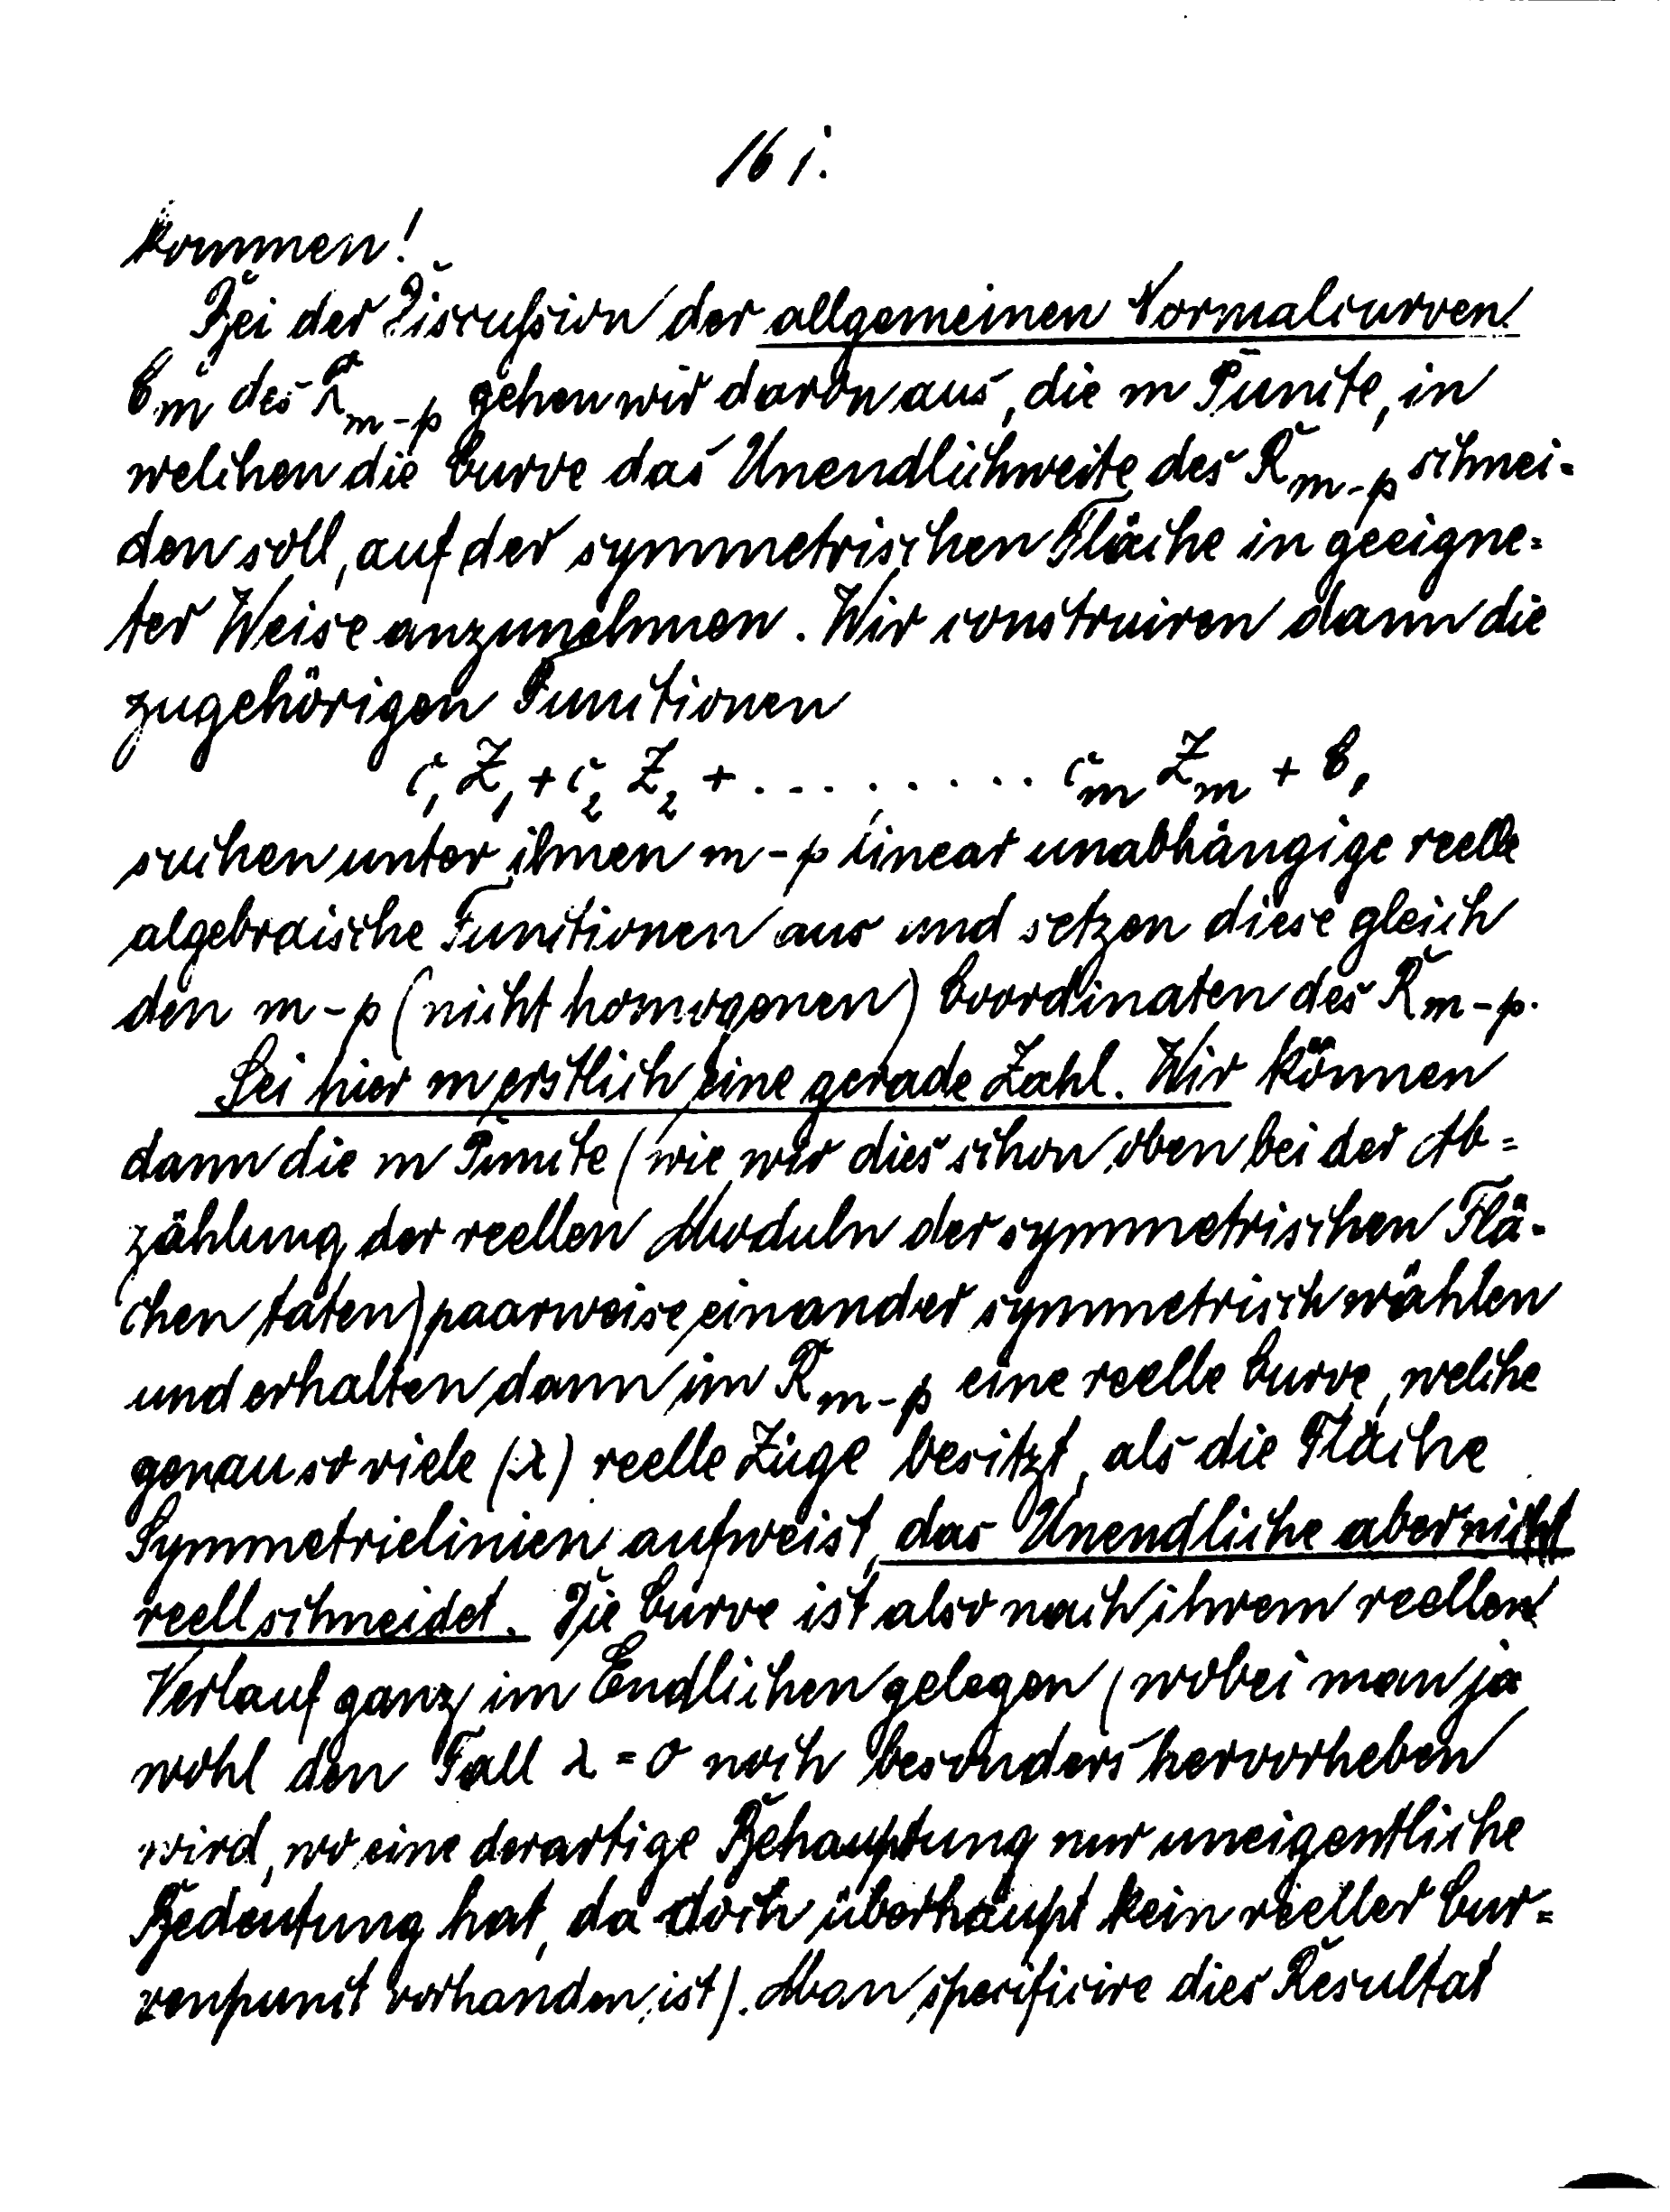 161.
kommen!
Bei der Discussion der allgemeinen Normalcurven
C_m des R_{m-p} gehen wir davon aus, die m Puncte, in
welchen die Curve das Unendlichweite des R_{m-p} schnei-
den soll, auf der symmetrischen Fläche in geeigne-
ter Weise anzunehmen. Wir construiren dann die
zugehörigen Functionen
c_1 Z_1 + c_2 Z_2 + . . . . . . . . . c_m Z_m + C,
suchen unter ihnen m-p linear unabhängige reelle
algebraische Functionen aus und setzen diese gleich
den m-p (nicht homogenen) Coordinaten des R_{m-p}.
Sei hier m erstlich eine gerade Zahl. Wir können
dann die m Puncte (wie wir dies schon oben bei der Ab-
zählung der reellen Moduln der symmetrischen Flä-
chen taten) paarweise einander symmetrisch wählen
und erhalten dann im R_{m-p} eine reelle Curve, welche
genau so viele (λ) reelle Züge besitzt, als die Fläche
Symmetrielinien aufweist, das Unendliche aber nicht
reell schneidet. Die Curve ist also nach ihrem reellen
Verlauf ganz im Endlichen gelegen (wobei man ja
wohl den Fall λ = 0 noch besonders hervorheben
wird, wo eine derartige Behauptung nur uneigentliche
Bedeutung hat, da doch überhaupt kein reeller Cur-
venpunct vorhanden ist). Man specificire dies Resultat